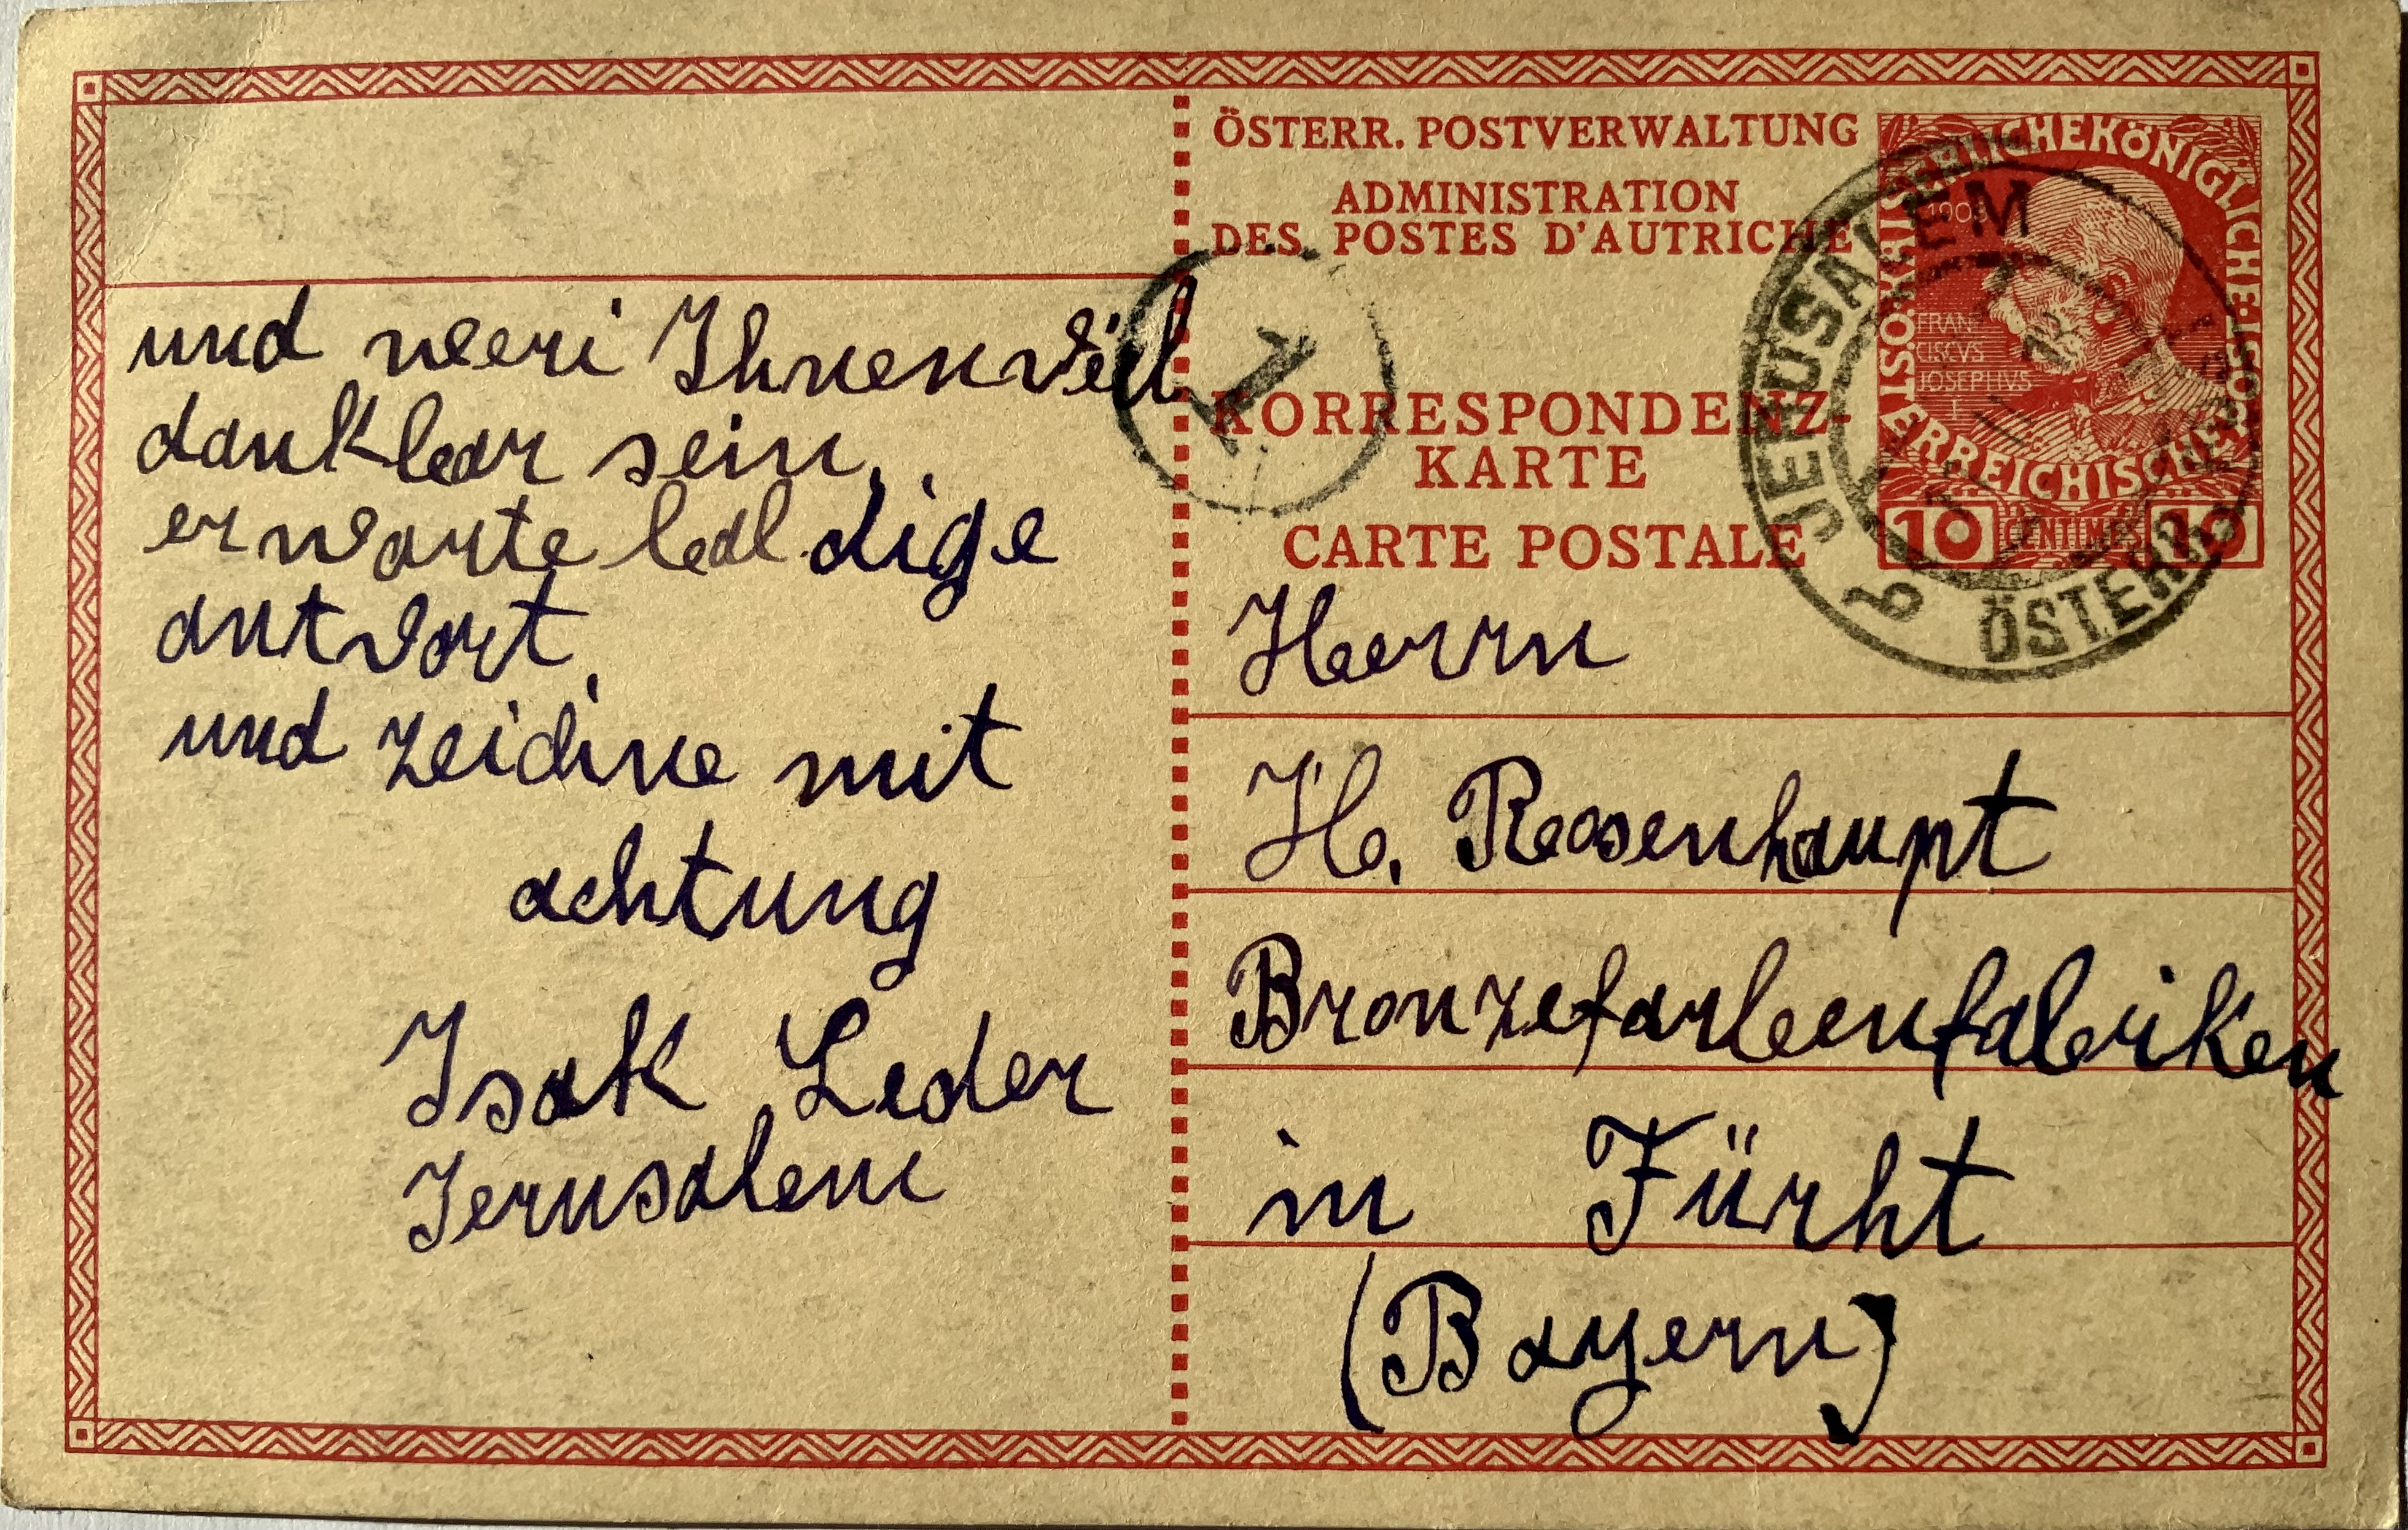 und weeri Ihnen viel
dankbar sein,
erwarte baldige
antwort,
und zeichne mit
achtung
Isak Leder
Jerusalem
ÖSTERR. POSTVERWALTUNG
ADMINISTRATION
DES POSTES D'AUTRICHE
KORRESPONDENZ-
KARTE
CARTE POSTALE
KAISERLICHEKÖNIGLICHE
ÖSTERREICHISCHE
1908
FRAN
CISCVS
JOSEPHVS
I
10 CENTIMES 10
JERUSALEM
ÖSTERR.
b
1
Herrn
H. Rosenhaupt
Bronzefarbenfabriken
in Fürht
(Bayern)